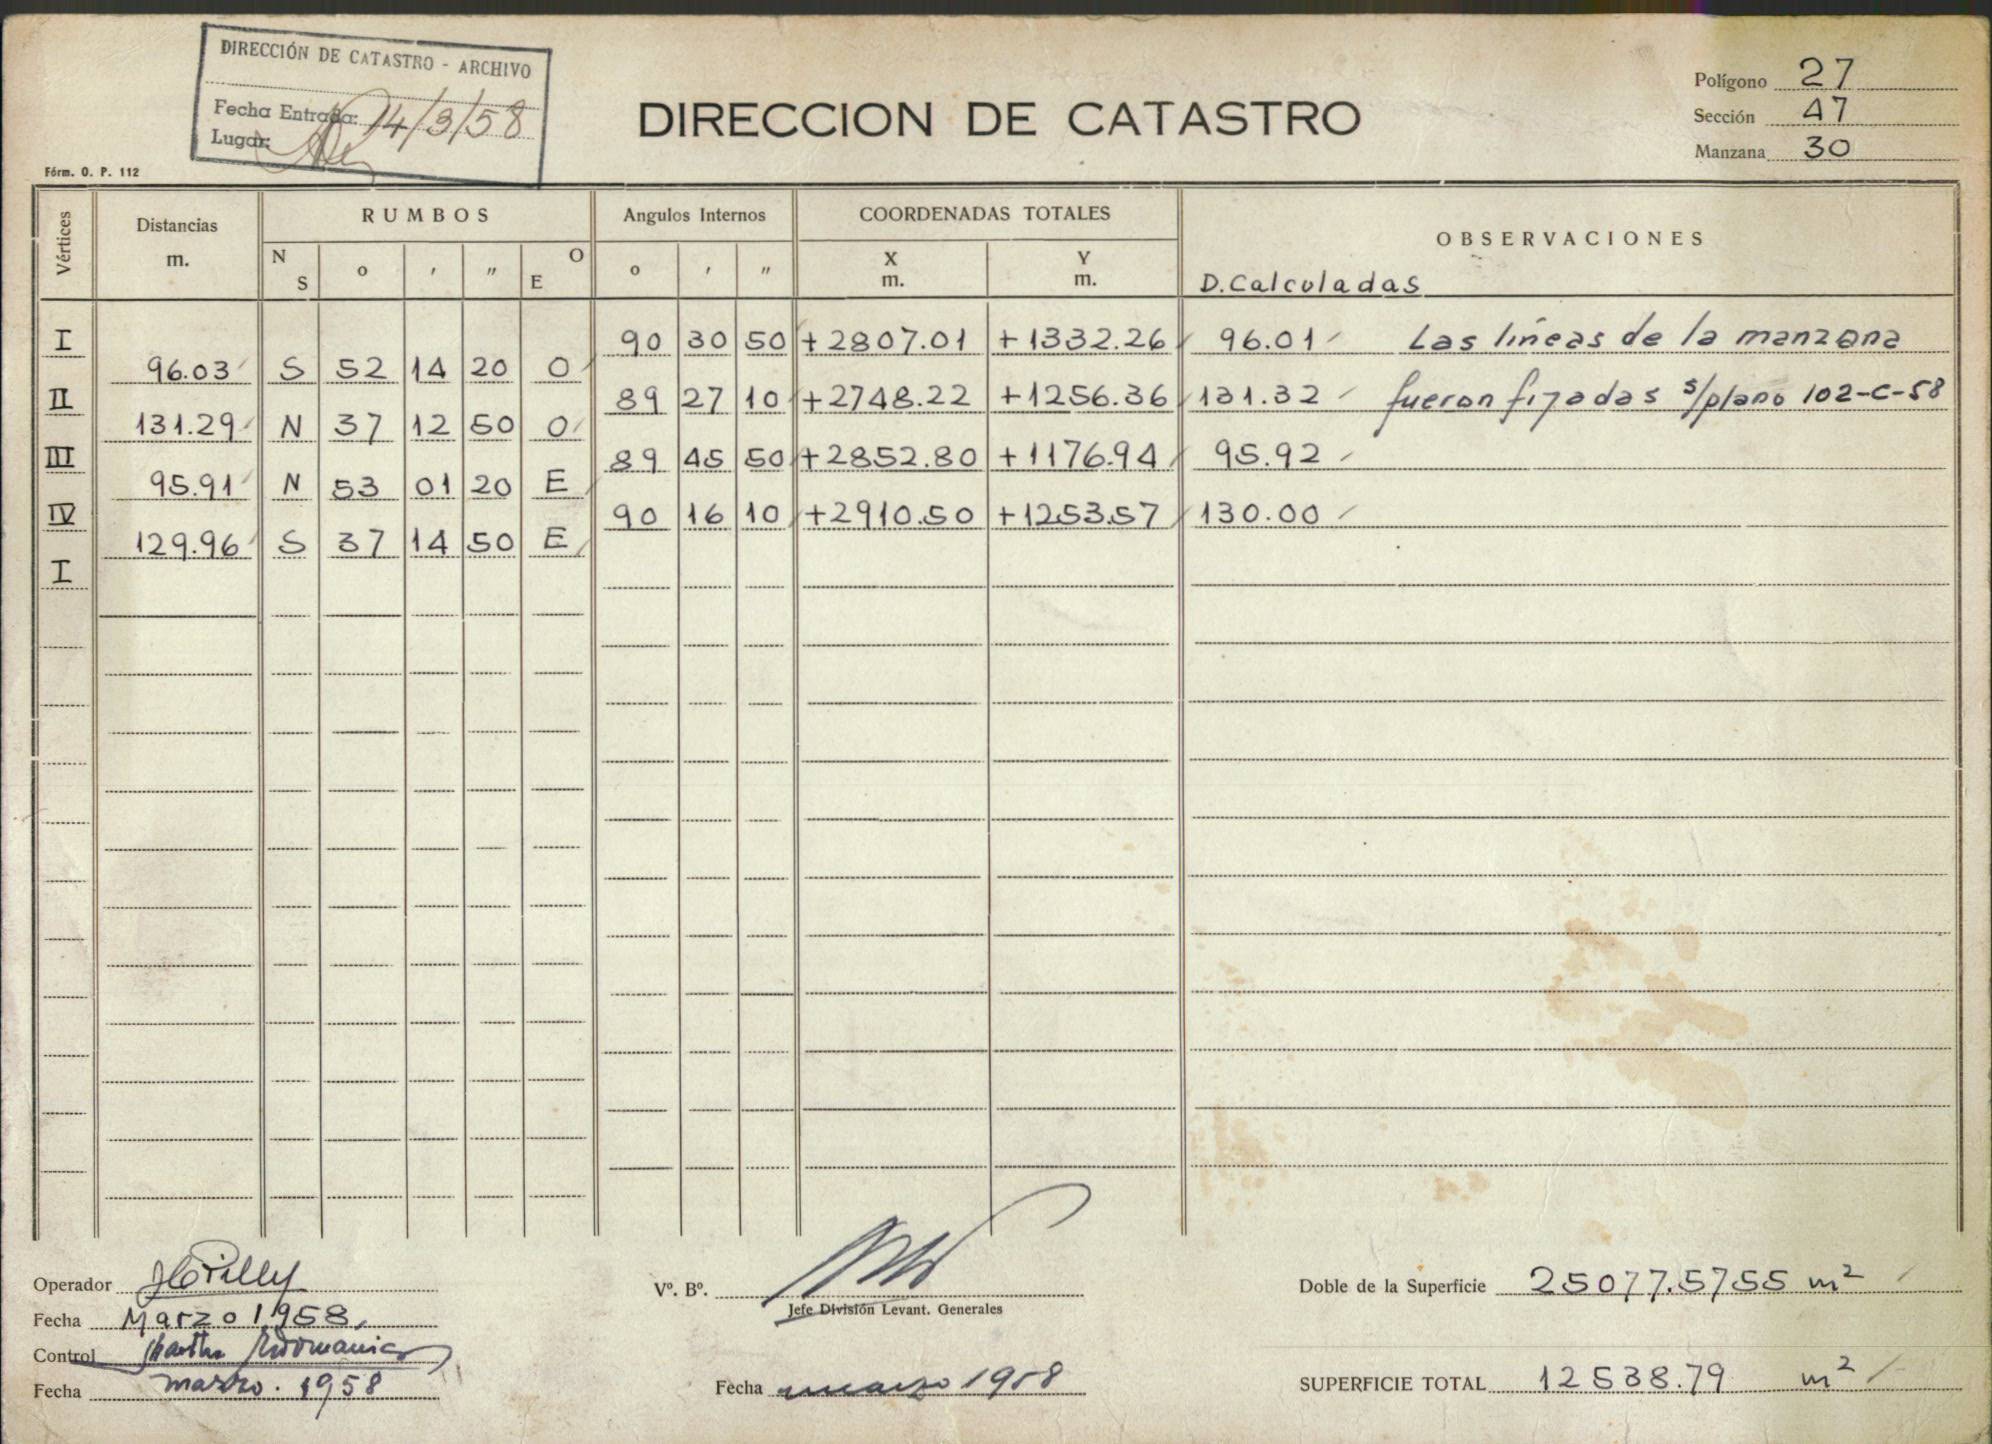 DIRECCIÓN DE CATASTRO - ARCHIVO
Fecha Entrada: 14/3/58
Lugar:
DIRECCION DE CATASTRO
Polígono 27
Sección 47
Manzana 30
Fórm. O. P. 112
Vértices Distancias m. RUMBOS N S o ' " O E Angulos Internos o ' " COORDENADAS TOTALES X m. Y m. OBSERVACIONES
D. Calculadas
I 90 30 50 +2807.01 +1332.26 96.01 Las líneas de la manzana
96.03 S 52 14 20 O
II 89 27 10 +2748.22 +1256.36 131.32 fueron fijadas s/plano 102-C-58
131.29 N 37 12 50 O
III 89 45 50 +2852.80 +1176.94 95.92
95.91 N 53 01 20 E
IV 90 16 10 +2910.50 +1253.57 130.00
129.96 S 37 14 50 E
I
Operador
Fecha Marzo 1958
Control
Fecha marzo. 1958
Vº. Bº.
Jefe División Levant. Generales
Fecha marzo 1958
Doble de la Superficie 25077.5755 m²
SUPERFICIE TOTAL 12538.79 m²